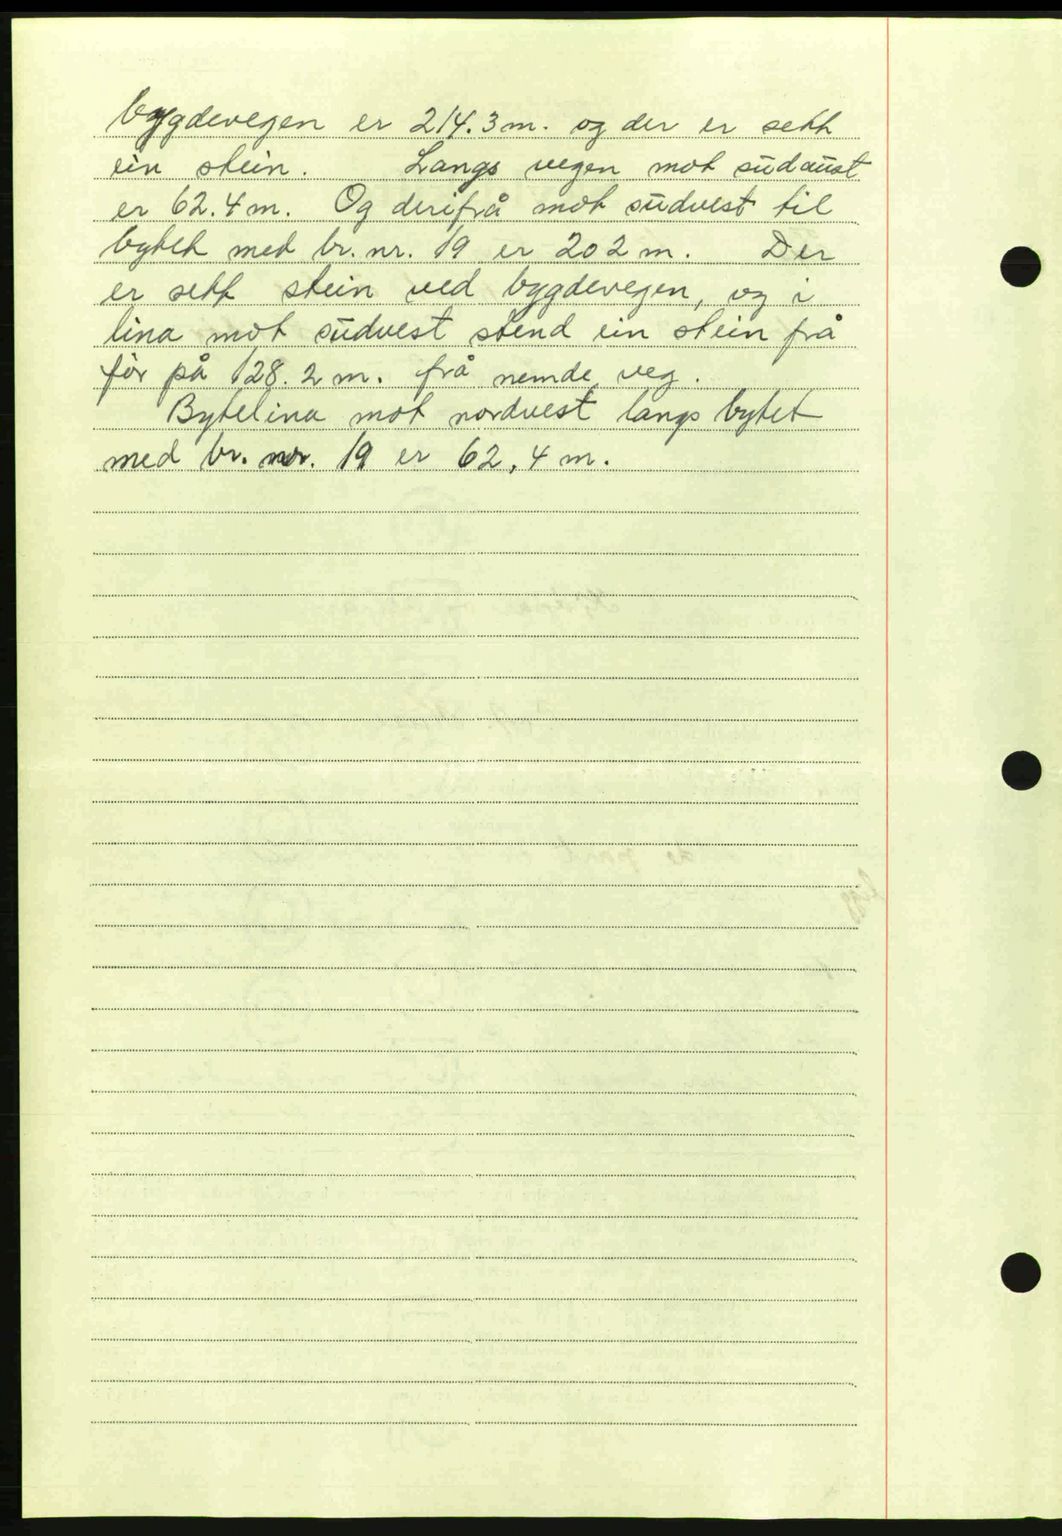 bygdevegen er 214.3 m. og der er sett
ein stein. Langs vegen mot sūdaūst
er 62.4 m. Og derifrå mot sūdvest til
bytet med br. nr. 19 er 202 m. Der
er sett stein ved bygdevegen, og i
lina mot sūdvest stend ein stein frå
før på 128.2 m. frå nemde veg.
Bytelina mot nordvest langs bytet
med br. nr. 19 er 62,4 m.